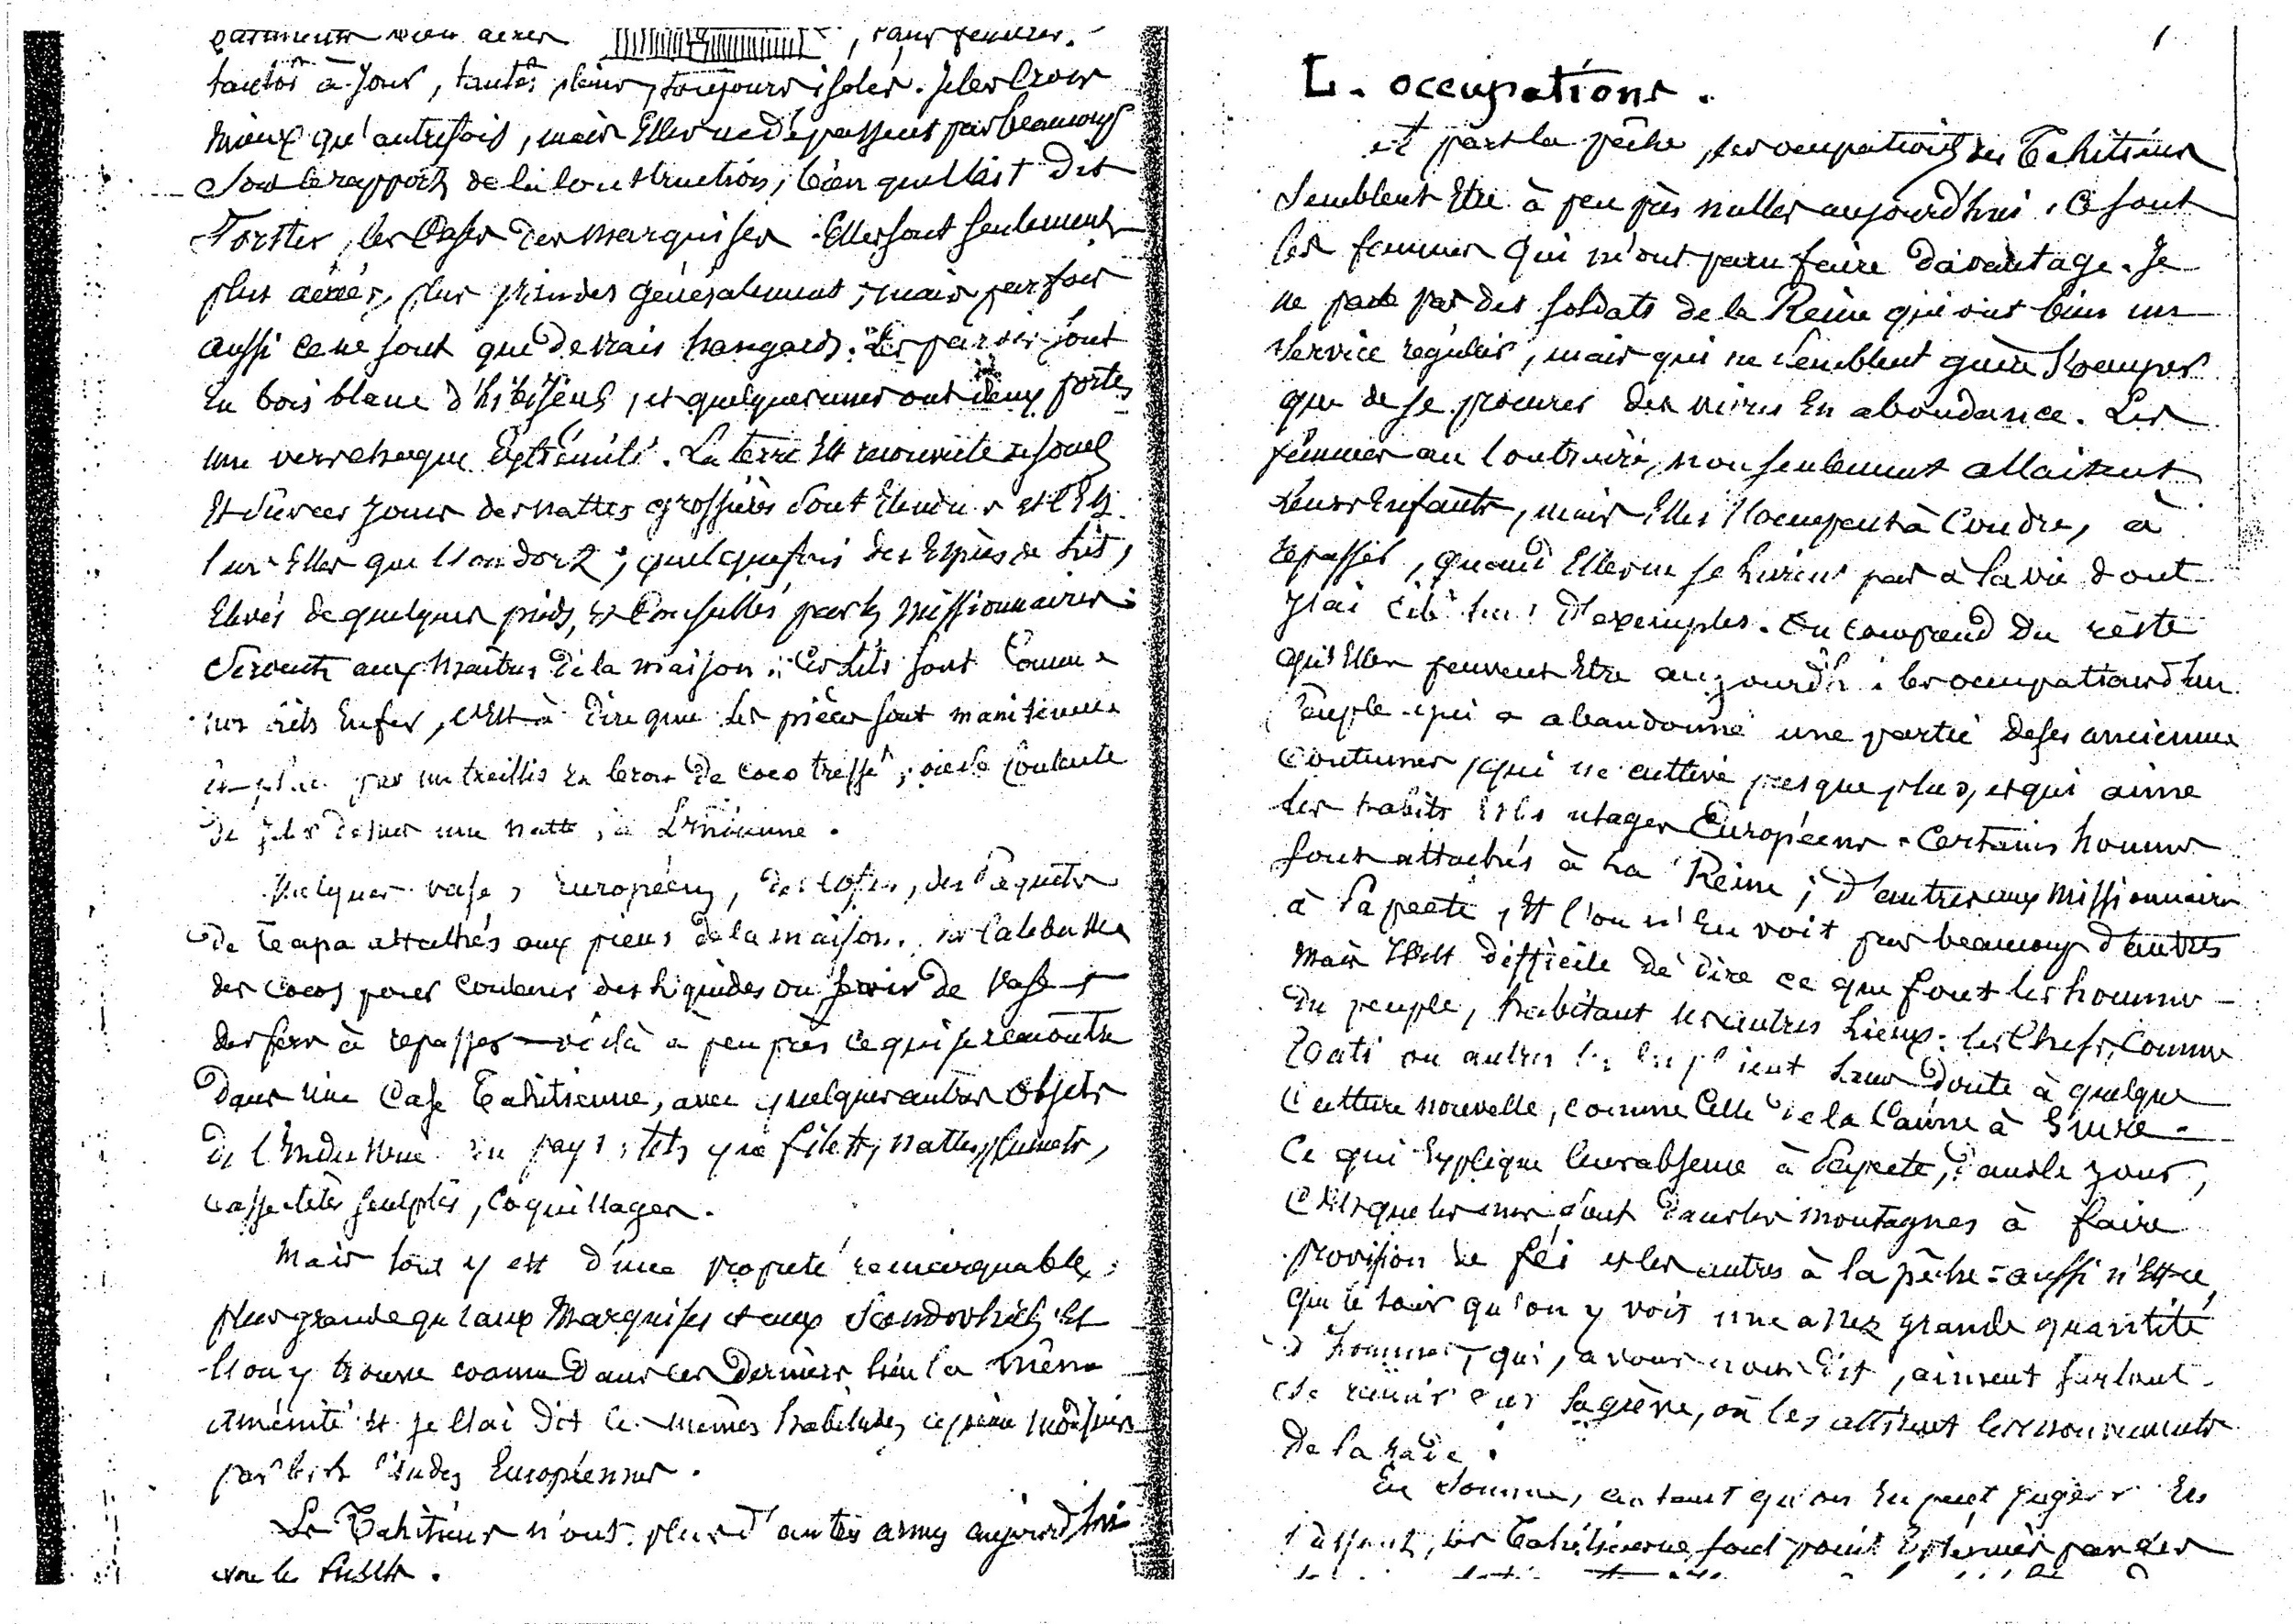 bien aérés , sans fenêtres.
tantôt à jour, tantôt pleins, toujours isolés. Je les crois
mieux qu'autrefois, mais Elles ne dépassent pas beaucoup
sous le rapport de la construction, bien que l'ait dit
Forster, les Cases des marquises. Elles sont seulement
plus aérées, plus grandes généralement, mais parfois
aussi ce ne sont que de vrais hangards. Les parois sont
en bois blanc d'hibiscus, et quelques unes ont deux portes
une vers chaque Extrémité. La terre Est recouverte de foin
Et sur ces joncs des nattes grossières sont Etendues et c'Est
sur Elles que l'on dort ; quelquefois des Espèces de lits,
Elevés de quelques pieds, et Conseillés par les missionnaires
servent aux maîtres de la maison : Ces lits sont Comme
nos lits Enfer, c'Est à dire que les pièces sont maintenues
par un treillis en de coco tressé,
une natte
Quelques vases Européens, des coffres, des Paquets
de tapa attachés aux pieux de la maison, Calebasses
des cocos pour contenir des liquides ou servir de vases
des fers à repasser voilà à peu près ce qui se rencontre
dans une Case Tahitienne, avec quelques autres objets
de l'industrie du pays : tels que filets, nattes, plumets,
casse-têtes sculptés, coquillages.
Mais tout y est d'une propreté remarquable,
plus grande qu'aux Marquises et aux Sandwhich Et
l'on y trouve comme dans ces derniers lieu la même
aménité Et je l'ai dit les mêmes habitudes
par les Européennes.
Les Tahitiens n'ont plus d'autres armes aujourd'hui
que le fusil.
L. occupations.
et part la pêche, les occupations des Tahitiens
semblent Etre à peu près nulles aujourd'hui. Ce sont
les femmes qui m'ont paru faire davantage. Je
ne parle pas des soldats de la Reine qui ont bien un
service régulier, mais qui ne semblent guère s'occuper
que de se procurer des vivres En abondance. Les
femmes au Contraire, non seulement allaitent
leurs Enfants, mais Elles s'occupent à Coudre, à
repasser, quand Elles ne se livrent pas à la vie dont
j'ai cité d'exemples. On comprend du reste
qu'Elles peuvent Etre aujourd'hui les occupations d'un
peuple qui a abandonné une partie de ses anciennes
Coutumes, qui ne cultive presque plus, et qui aime
les habits Et les usages Européens. Certains hommes
sont attachés à la Reine ; d'autres aux missionnaires
à Papeete, Et l'on n'En voit pas beaucoup d'autres
mais il Est difficile de dire ce que font les hommes
du peuple, habitant les autres lieux : les Chefs, Comme
ou autres sans doute à quelque
Culture nouvelle, comme Celle de la Canne à Sucre.
Ce qui Explique leur absence à Papeete, dans le jour,
c'Est que les uns sont dans les montagnes à faire
provision de féi et les autres à la pêche : aussi n'Est-ce
que le soir qu'on y voit une assez grande quantité
d'hommes, qui, avons nous dit, aiment surtout
se réunir sur la grève, où les attirent les mouvements
de la rade.
En somme, autant qu'on En peut juger En
passant, les Tahitiens ne sont point par des